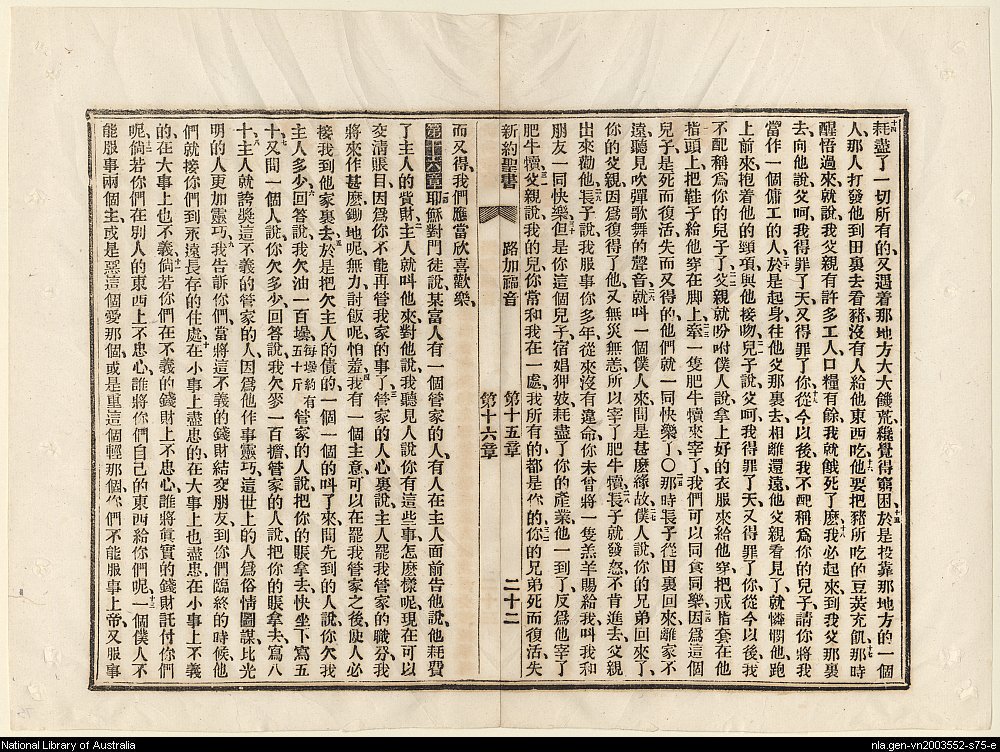 耗盡了一切所有的、又遇着那地方大大饑荒、纔覺得窮困、於是投靠那地方的一個
人、那人打發他到田裏去看豬、沒有人給他東西吃、他要把豬所吃的豆莢充飢、那時
醒悟過來、就說、我父親有許多工人口糧有餘、我就餓死了麽、我必起來到我父那裏
去、向他說、父呵、我得罪了天、又得罪了你、從今以後、我不配稱爲你的兒子、請你將我
當作一個傭工的人、於是起身往他父那裏去、相離還遠、他父親看見了、就憐憫他、跑
上前來、抱着他的頸項、與他接吻、兒子說、父呵、我得罪了天、又得罪了你、從今以後我
不配稱爲你的兒子了、父親就吩咐僕人說、拿上好的衣服來給他穿、把戒指套在他
指頭上、把鞋子給他穿在脚上、牽一隻肥牛犢來宰了、我們可以同食同樂、因爲這個
兒子是死而復活、失而又得的、他們就一同快樂了〇那時長子從田裏回來、離家不
遠、聽見吹彈歌舞的聲音、就呌一個僕人來、問是甚麽緣故、僕人說、你的兄弟回來了、
你的父親、因爲復得了他、又無災無恙、所以宰了肥牛犢、長子就發怒、不肯進去、父親
出來勸他、長子說、我服事你多年、從來沒有違命、你未曾將一隻羔羊賜給我、呌我和
朋友一同快樂、但是你這個兒子、宿娼狎妓、耗盡了你的產業、他一到了、反爲他宰了
肥牛犢、父親說、我的兒、你常和我在一處、我所有的都是你的、你的兄弟死而復活、失
新約聖書 路加福音 第十五章 第十六章 二十二
而又得、我們應當欣喜歡樂、
第十六章 耶穌對門徒說、某富人有一個管家的人、有人在主人面前告他說、他耗費
了主人的貲財、主人就叫他來、對他說、我聽見人說你有這些事、怎麽樣呢、現在可以
交淸賬目、因爲你不能再管我家的事了、管家的人心裏說、主人罷我管家的職分、我
將來作甚麽、鋤地呢、無力、討飯呢、怕羞、我有一個主意、可以在罷我管家之後、使人必
接我到他家裏去、於是把欠主人的債的、一個一個的呌了來、問先到的人說、你欠我
主人多少、回答說、我欠油一百壜、每壜約有五十斤管家的人說、把你的賬拿去、快坐下寫五
十、又問一個人說、你欠多少、回答說、我欠麥一百擔、管家的人說、把你的賬拿去、寫八
十、主人就誇獎這不義的管家的人、因爲他作事靈巧、這世上的人、爲俗情圖謀、比光
明的人更加靈巧、我告訴你們、當將這不義的錢財結交朋友、到你們臨終的時候、他
們就接你們到永遠長存的住處、在小事上盡忠的、在大事上也盡忠、在小事上不義
的、在大事上也不義、倘若你們在不義的錢財上不忠心、誰將眞實的錢財託付你們
呢、倘若你們在別人的東西上不忠心、誰將你們自己的東西給你們呢、一個僕人不
能服事兩個主、或是惡這個愛那個、或是重這個輕那個、你們不能服事上帝、又服事
National Library of Australia
nla.gen-vn2003552-s75-e